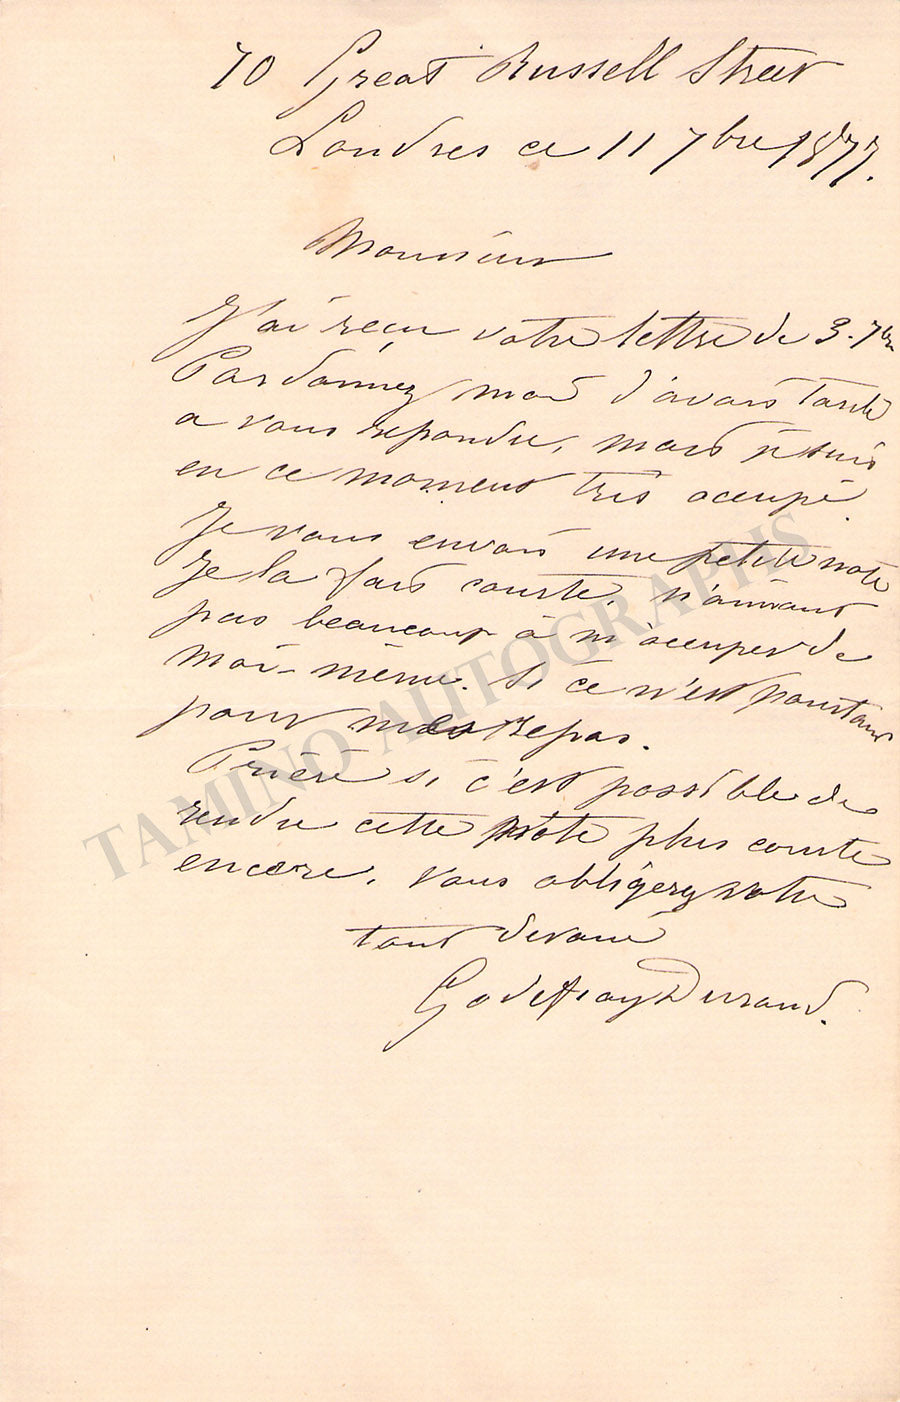 70 Great Russell Street
Londres ce 11 7bre 1877.
Monsieur
J'ai reçu votre lettre de 3. 7bre
Pardonnez moi d'avoir tardé
a vous repondre, mais je suis
en ce moment très occupé.
Je vous envois une petite note
Je la fais courte, n'aimant
pas beaucoup à m'occuper de
moi-même. Si ce n'est pourtant
pour mes repas.
Prière si c'est possible de
rendre cette note plus courte
encore, vous obligerez votre
tout devoué
Godefroy Durand.
TAMINO AUTOGRAPHS